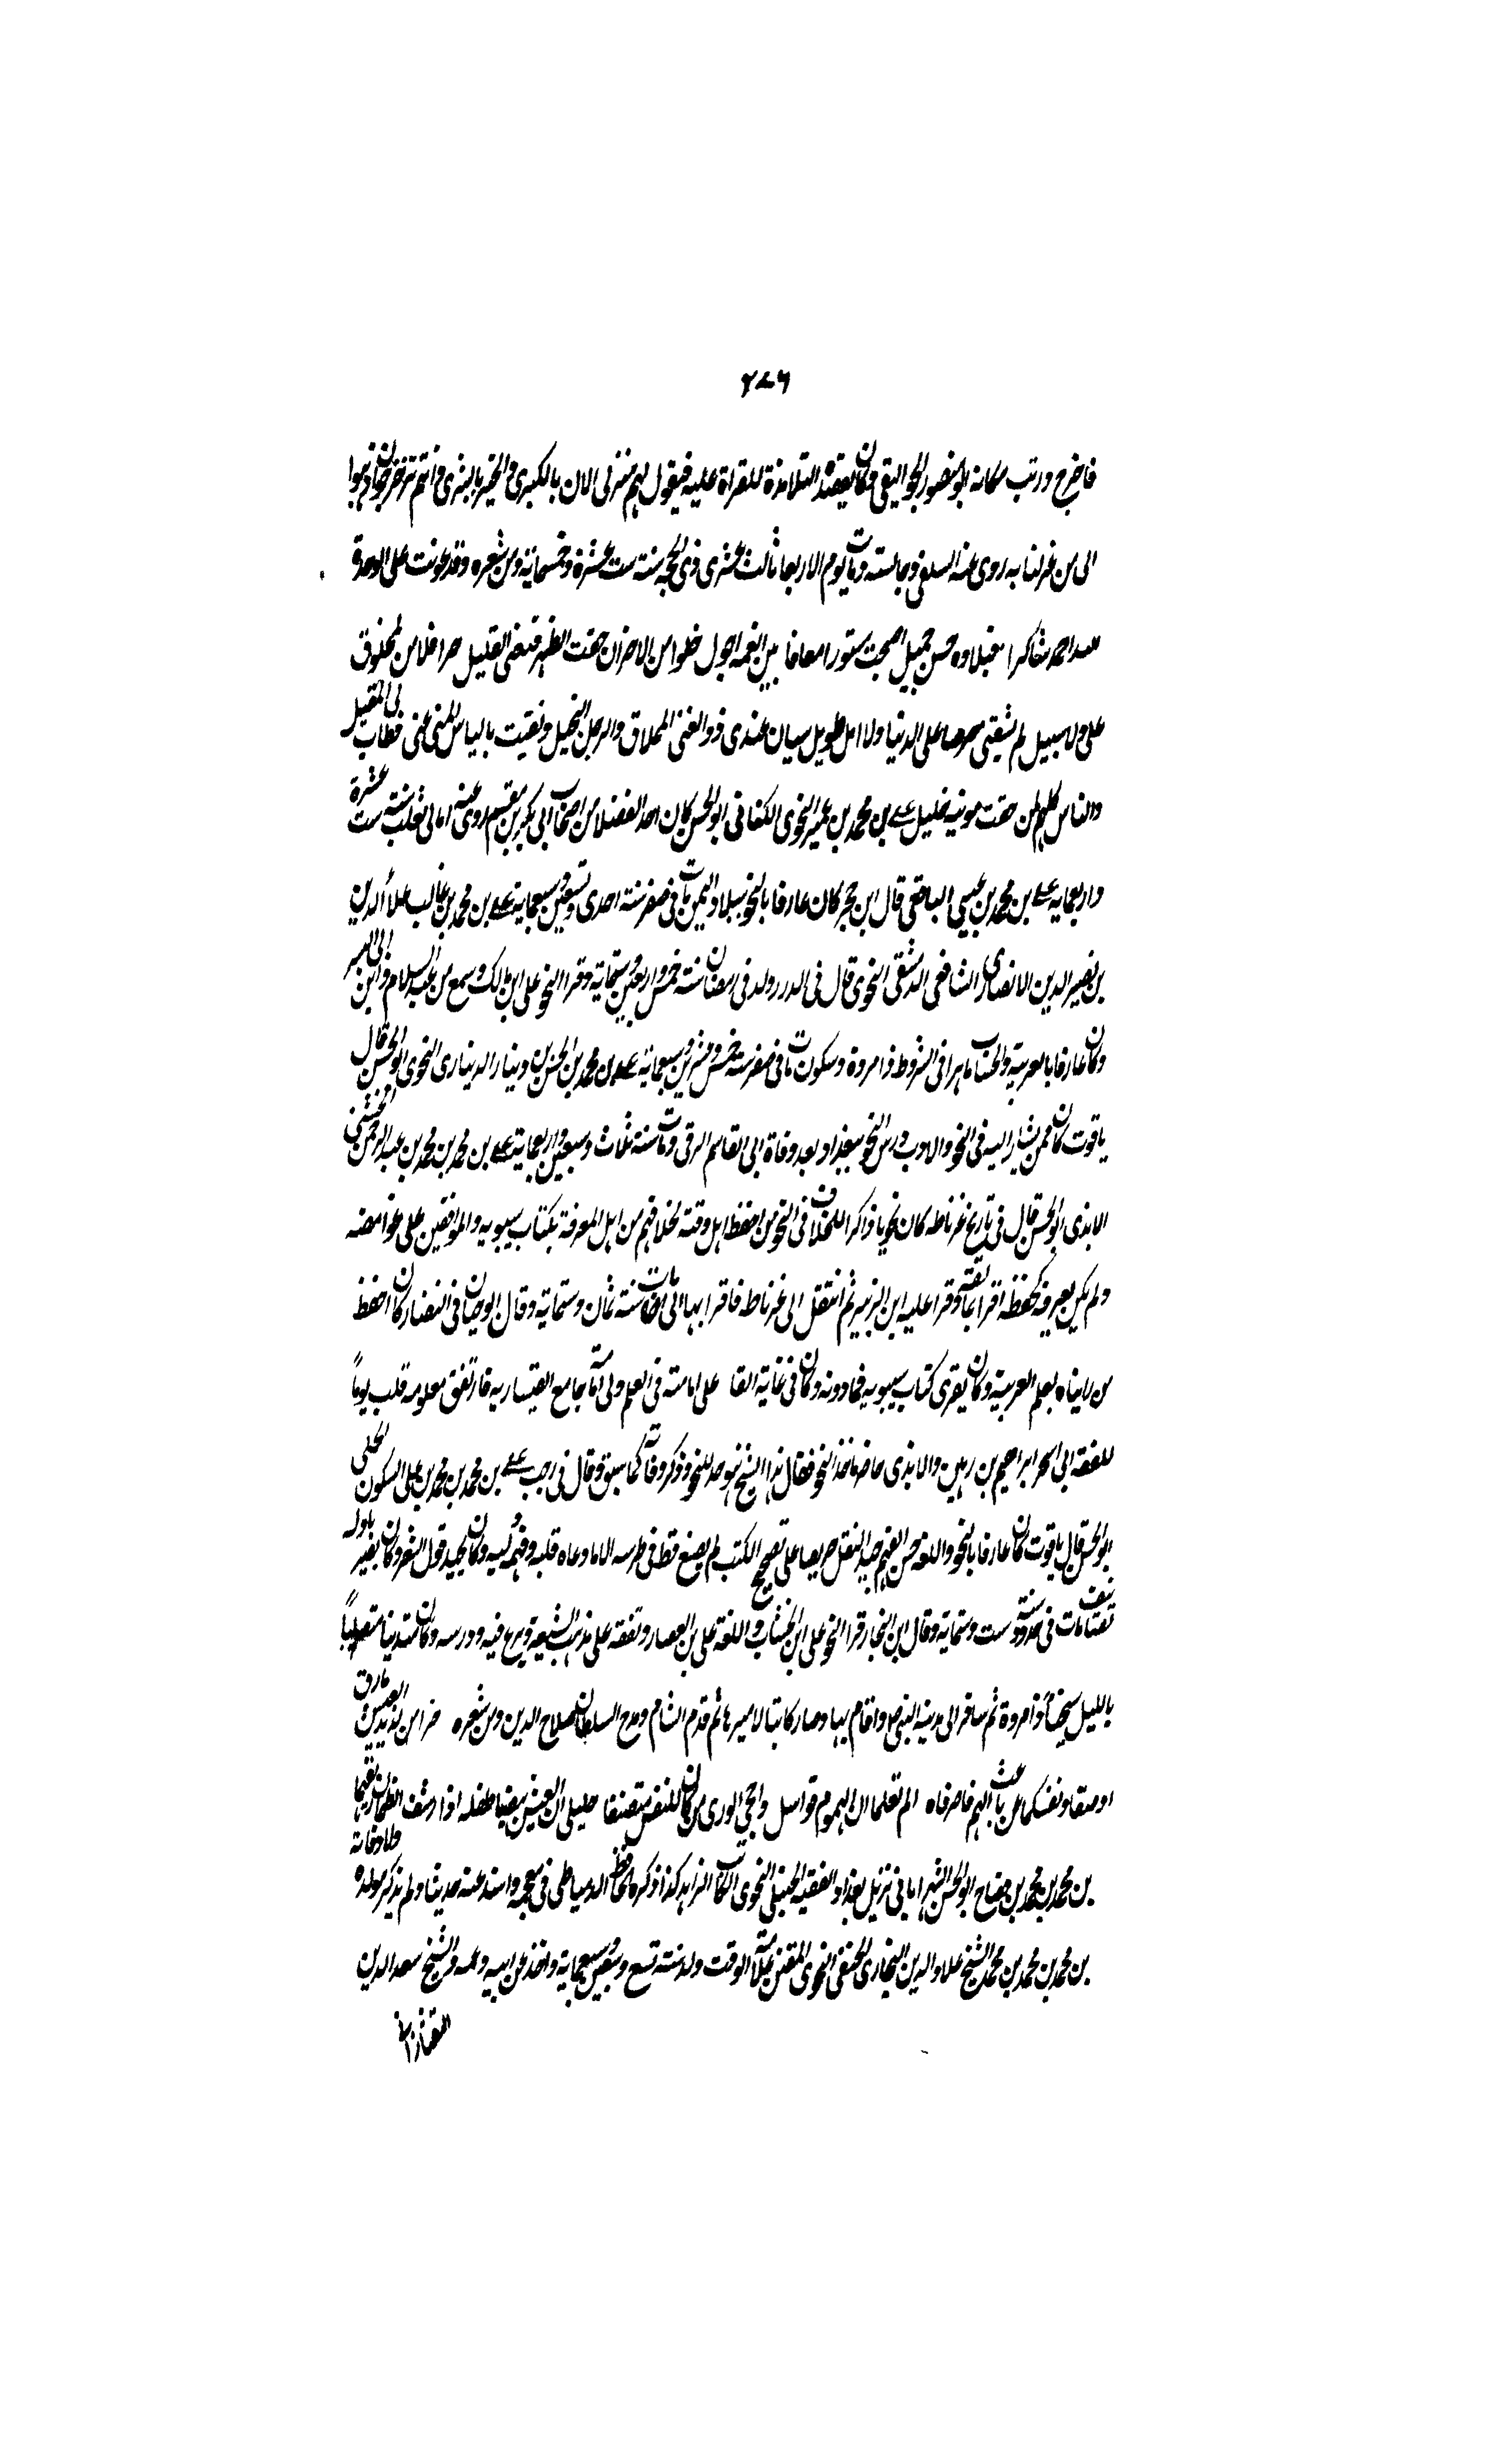 ٢٧٦
فاخرج ورتب مكانه ابو منصور الجواليقى وكان يقصده التلامذة للقراة عليه فيقول لهم منزلى الان بالكبرى والخبز بالشرى وانتم
الى من عزلنا به روى عنه السلفى وجالسته ومات يوم الاربعا ثالث عشرى ذى الحجه سنة ست عشرة وخمسماية ومن شعره
احمد شاكرا حسن جميل اصبحت مستورا معافا بين انعمه اجول خلوا من الاحزان خفت الظهر فتغنى القليل حرا فلا من لمخلوق
على ولا سبيل لم يشقنى حرصا على الدنيا ولا امل طويل سيان عندى ذو الغنى المتلاف والرجل البخيل ونفيت بالياس المنى عنى فطاب لى المقيل
والناس كلهم لمن خفت مونيه خليل على بن محمد بن عمير النحوى الكنانى ابو الحسن كان احد الفضلا من اصحاب ابى بكر بن مقسم روى عنه امالى ثعلب سنة ست عشرة
واربعمايه على بن محمد بن عيسى اليافعى قال ابن حجر كان عارفا بالنحو ببلاد اليمن مات فى صفر سنة احدى وتسعين وسبعماية على بن محمد بن غالب علا الدين
بن نصير الدين الانصارى الشافعى الدمشقى النحوى قال فى الدرر ولد فى رمضان سنة خمس واربعين وستماية وقرا النحو على ابن مالك وسمع من عبد السلام وابن ابى اليسر
وكان عارفا بالعربية والحساب ماهرا فى الشروط ذا مروة وسكون مات فى صفر سنة خمس وعشرين وسبعماية على بن محمد بن الحسن بن دينار الدينارى النحوى ابو الحسن قال
ياقوت كان ممن يشار اليه فى النحو والادب درس النحو ببغداد بعد وفاة ابى القاسم الرقى ومات سنة ثلاث وسبعين واربعماية على بن محمد بن محمد بن عبد الرحمن الخشنى
الابذى ابو الحسن قال فى تاريخ غرناطه كان نحويا ذاكرا للخلاف فى النحو من احفظ اهل وقته لخلافهم من اهل المعرفة بكتاب سيبويه والواقفين على غوامضه
ولم يكن يعرفه كحفظه اقرا بمالقة وقرا عليه ابن الزبير ثم انتقل الى غرناطه فاقرا بها الى ان مات سنة ثمان وستماية وقال ابو حيان فى النضار كان احفظ
من رايناه بعلم العربية وكان يقرى كتاب سيبويه فما دونه وكان فى غاية على امامته فى العلم ولى امامة جامع القيساريه فارتفق معلومه قلب يوما
للفقه ابى اسحر ابراهيم بن رهين والابذى حاضر ماخذ النحو فقال هذا الشيخ هو حد للنحو وذكر وفاته كما سبق وقال فى رجب على بن محمد بن محمد بن على السكون الحلى
ابو الحسن قال ياقوت كان عارفا بالنحو واللغة حسن الفهم جيد النقل حريصا على تصحيح الكتب لم يضع قط فى طرسه الا ما وعاه قلبه وفهمه لبه وكان يجيد قول الشعر وكان نصيريا وله
تصانيف مات فى حدود سنة ست وستماية وقال ابن النجار قرا النحو على ابن الخشاب واللغة على بن العصار وتفقه على مذهب الشيعة وبرع فيه ودرسه وكان متدينا مصليا
بالليل سخيا ذا مروة ثم سافر الى مدينة النبى ص واقام بها وصار كاتبا لاميرها ثم قدم الشام ومدح السلطان صلاح الدين ومن شعره خذا من لذيذ العيش ما رق
او صفا ونفسكما عن باعث الهم فاصرفاه الم تعلما ان الهموم قواتل واحجى الورى من كان للنفس منصفا خليلى ان العيش بيضا طفله اذا رشف الظمان ريقها
بن محمد بن محمد بن وضاح ابو الحسن الشهراماينى نزيل بغداد الفقيه الحنبلى النحوى الكاتب الزاهد كذا ذكره الحافظ الدمياطى فى معجمه واسند عنه حديثا ولم يذكر مولده ولا وفاته
بن محمد بن محمد بن محمد الشيخ علاو الدين البخارى الحنفى النحوى المفنن علامة الوقت ولد سنة تسع وسبعين وسبعماية واخذ عن ابيه وعمه والشيخ سعد الدين
التفتازانى